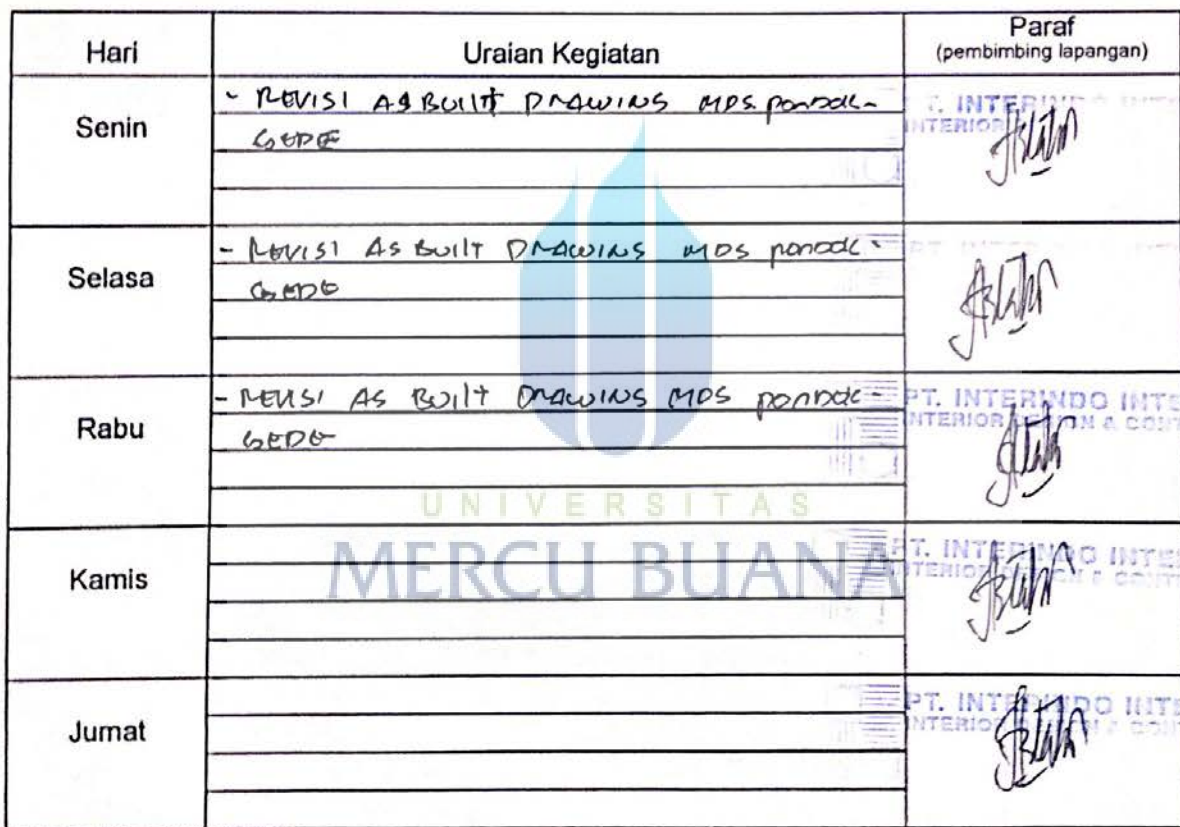 Hari Uraian Kegiatan Paraf
(pembimbing lapangan)
Senin
- REVISI AS BUILT DRAWING MDS pondok-
GEDE
T. INTERINDO INTE
INTERIOR
Selasa
- REVISI AS BUILT DRAWING MDS pondok-
GEDE
Rabu
- REVISI AS BUILT DRAWING MDS pondok-
GEDE
PT. INTERINDO INTE
INTERIOR DESIGN & CONT
UNIVERSITAS
MERCU BUANA
Kamis
PT. INTERINDO INTE
INTERIOR DESIGN & CONT
Jumat
PT. INTERINDO INTE
INTERIOR DESIGN & CONT